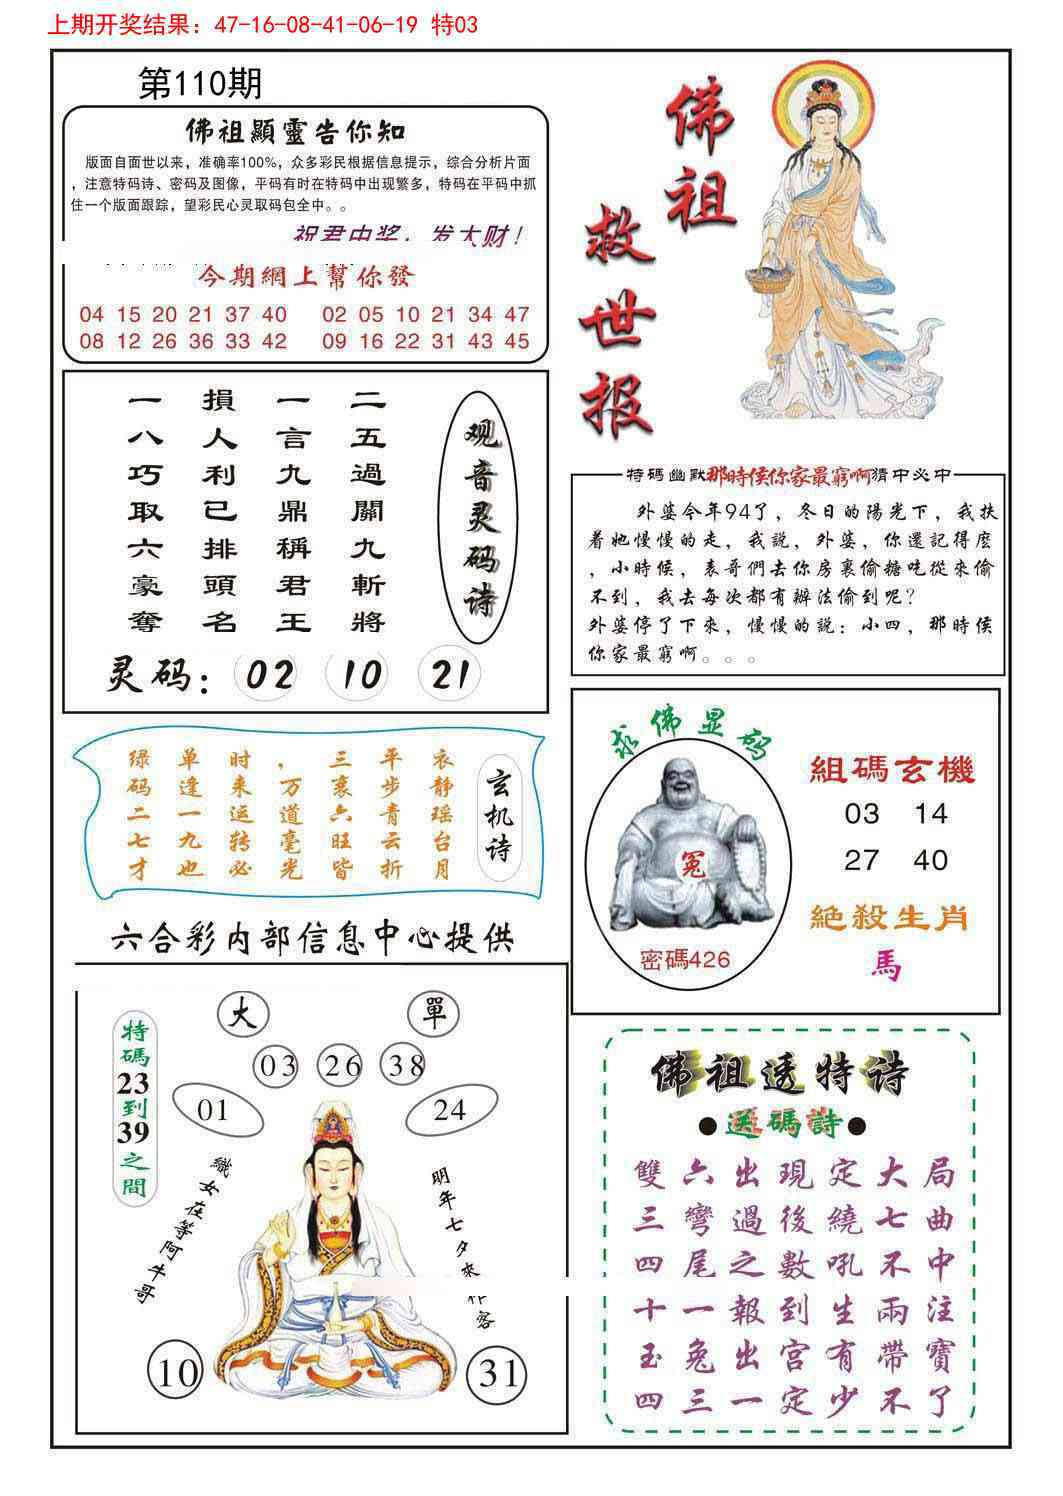 上期开奖结果：47-16-08-41-06-19 特03
第110期
佛祖顯靈告你知
版面自面世以来，准确率100%，众多彩民根据信息提示，综合分析片面
，注意特码诗、密码及图像，平码有时在特码中出现繁多，特码在平码中抓
住一个版面跟踪，望彩民心灵取码包全中。。
祝君中奖，发大财！
今期網上幫你發
04 15 20 21 37 40 02 05 10 21 34 47
08 12 26 36 33 42 09 16 22 31 43 45
佛祖
救世报
观音灵码诗
二五過關九斬將
一言九鼎稱君王
損人利己排頭名
一八巧取六豪奪
灵码：02 10 21
特碼幽默那時侯你家最窮啊猜中必中
外婆今年94了，冬日的陽光下，我扶
着她慢慢的走，我説，外婆，你還記得麽
，小時侯，表哥們去你房裏偷糖吃從來偷
不到，我去每次都有辦法偷到呢？
外婆停了下來，慢慢的説：小四，那時侯
你家最窮啊。。。
玄机诗
衣静瑶台月
平步青云折
三衰六旺皆
，万道毫光
时来运转必
单逢一九也
绿码二七才
求佛显码
冤
密碼426
組碼玄機
03 14
27 40
絶殺生肖
馬
六合彩内部信息中心提供
大 單
03 26 38
01 24
特碼23到39之間
織女在等阿牛哥
明年七夕來作客
10 31
佛祖透特诗
●送碼詩●
雙六出現定大局
三彎過後繞七曲
四尾之數吼不中
十一報到生兩注
玉兔出宫有帶寶
四三一定少不了